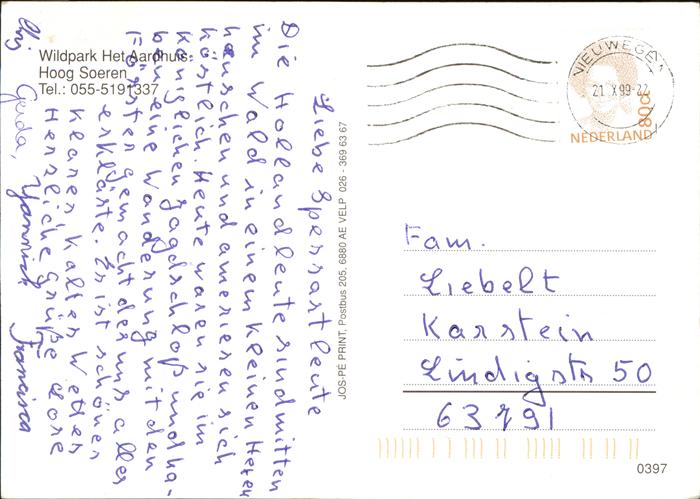 Wildpark Het Aardhuis
Hoog Soeren
Tel.: 055-5191337
Liebe Spessartleute
Die Hollandleute sind mitten
im Wald in einem kleinen Hexen
häuschen und amesieren sich
köstlich. Heute waren sie im
königlichen Jagdschloß und ha-
ben eine Wanderung mit den
Förster gemacht der uns alles
erklärte. Es ist schönes
klares kaltes Wetter
Herzliche Grüße
Gerda, Yannick Francisca
JOS-PÉ PRINT, Postbus 205, 6880 AE VELP 026 - 369 63 67
NIEUWEGEIN
21 X 99-22
80c
NEDERLAND
Fam.
Liebelt
Karstein
Lindigstr 50
63791
0397